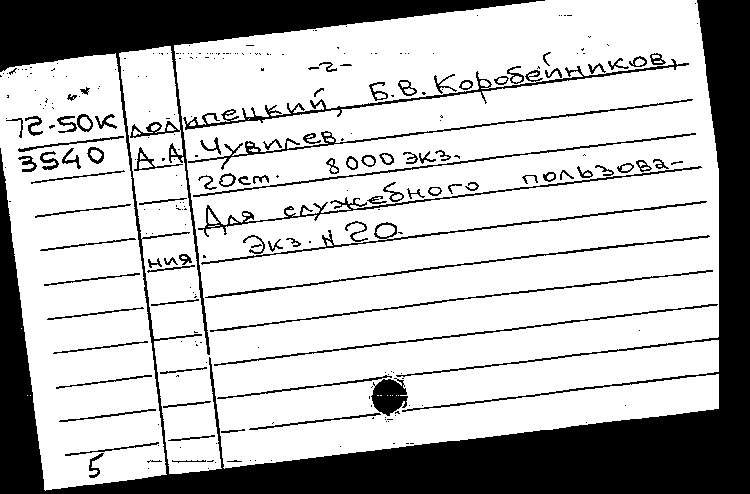 -2-
72-50к лолипецкий, Б.В. Коробейников,
3540 А.А. Чувилев.
20см. 8000 экз.
Для служебного пользова-
ния. Экз. N 20.
5